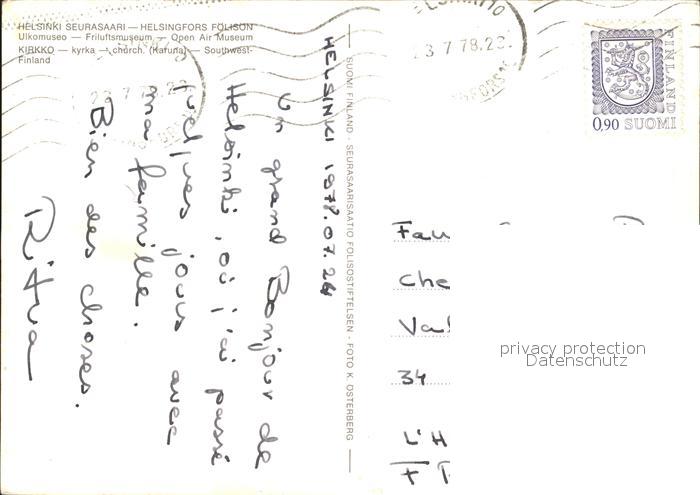 HELSINKI SEURASAARI — HELSINGFORS FÖLISÖN
Ulkomuseo — Friluftsmuseum — Open Air Museum
KIRKKO — kyrka — church. (Karuna) — Southwest-
Finland
HELSINKI 1978.07.24
Un grand Bonjour de
Helsinki, où j'ai passé
quelques jours avec
ma famille.
Bien des choses.
Ritva
SUOMI FINLAND - SEURASAARISÄÄTIÖ FÖLISÖSTIFTELSEN - FOTO K. ÖSTERBERG
23.7.78.23
FINLAND
0,90 SUOMI
Fau
Che
Val
34
L'H
privacy protection
Datenschutz